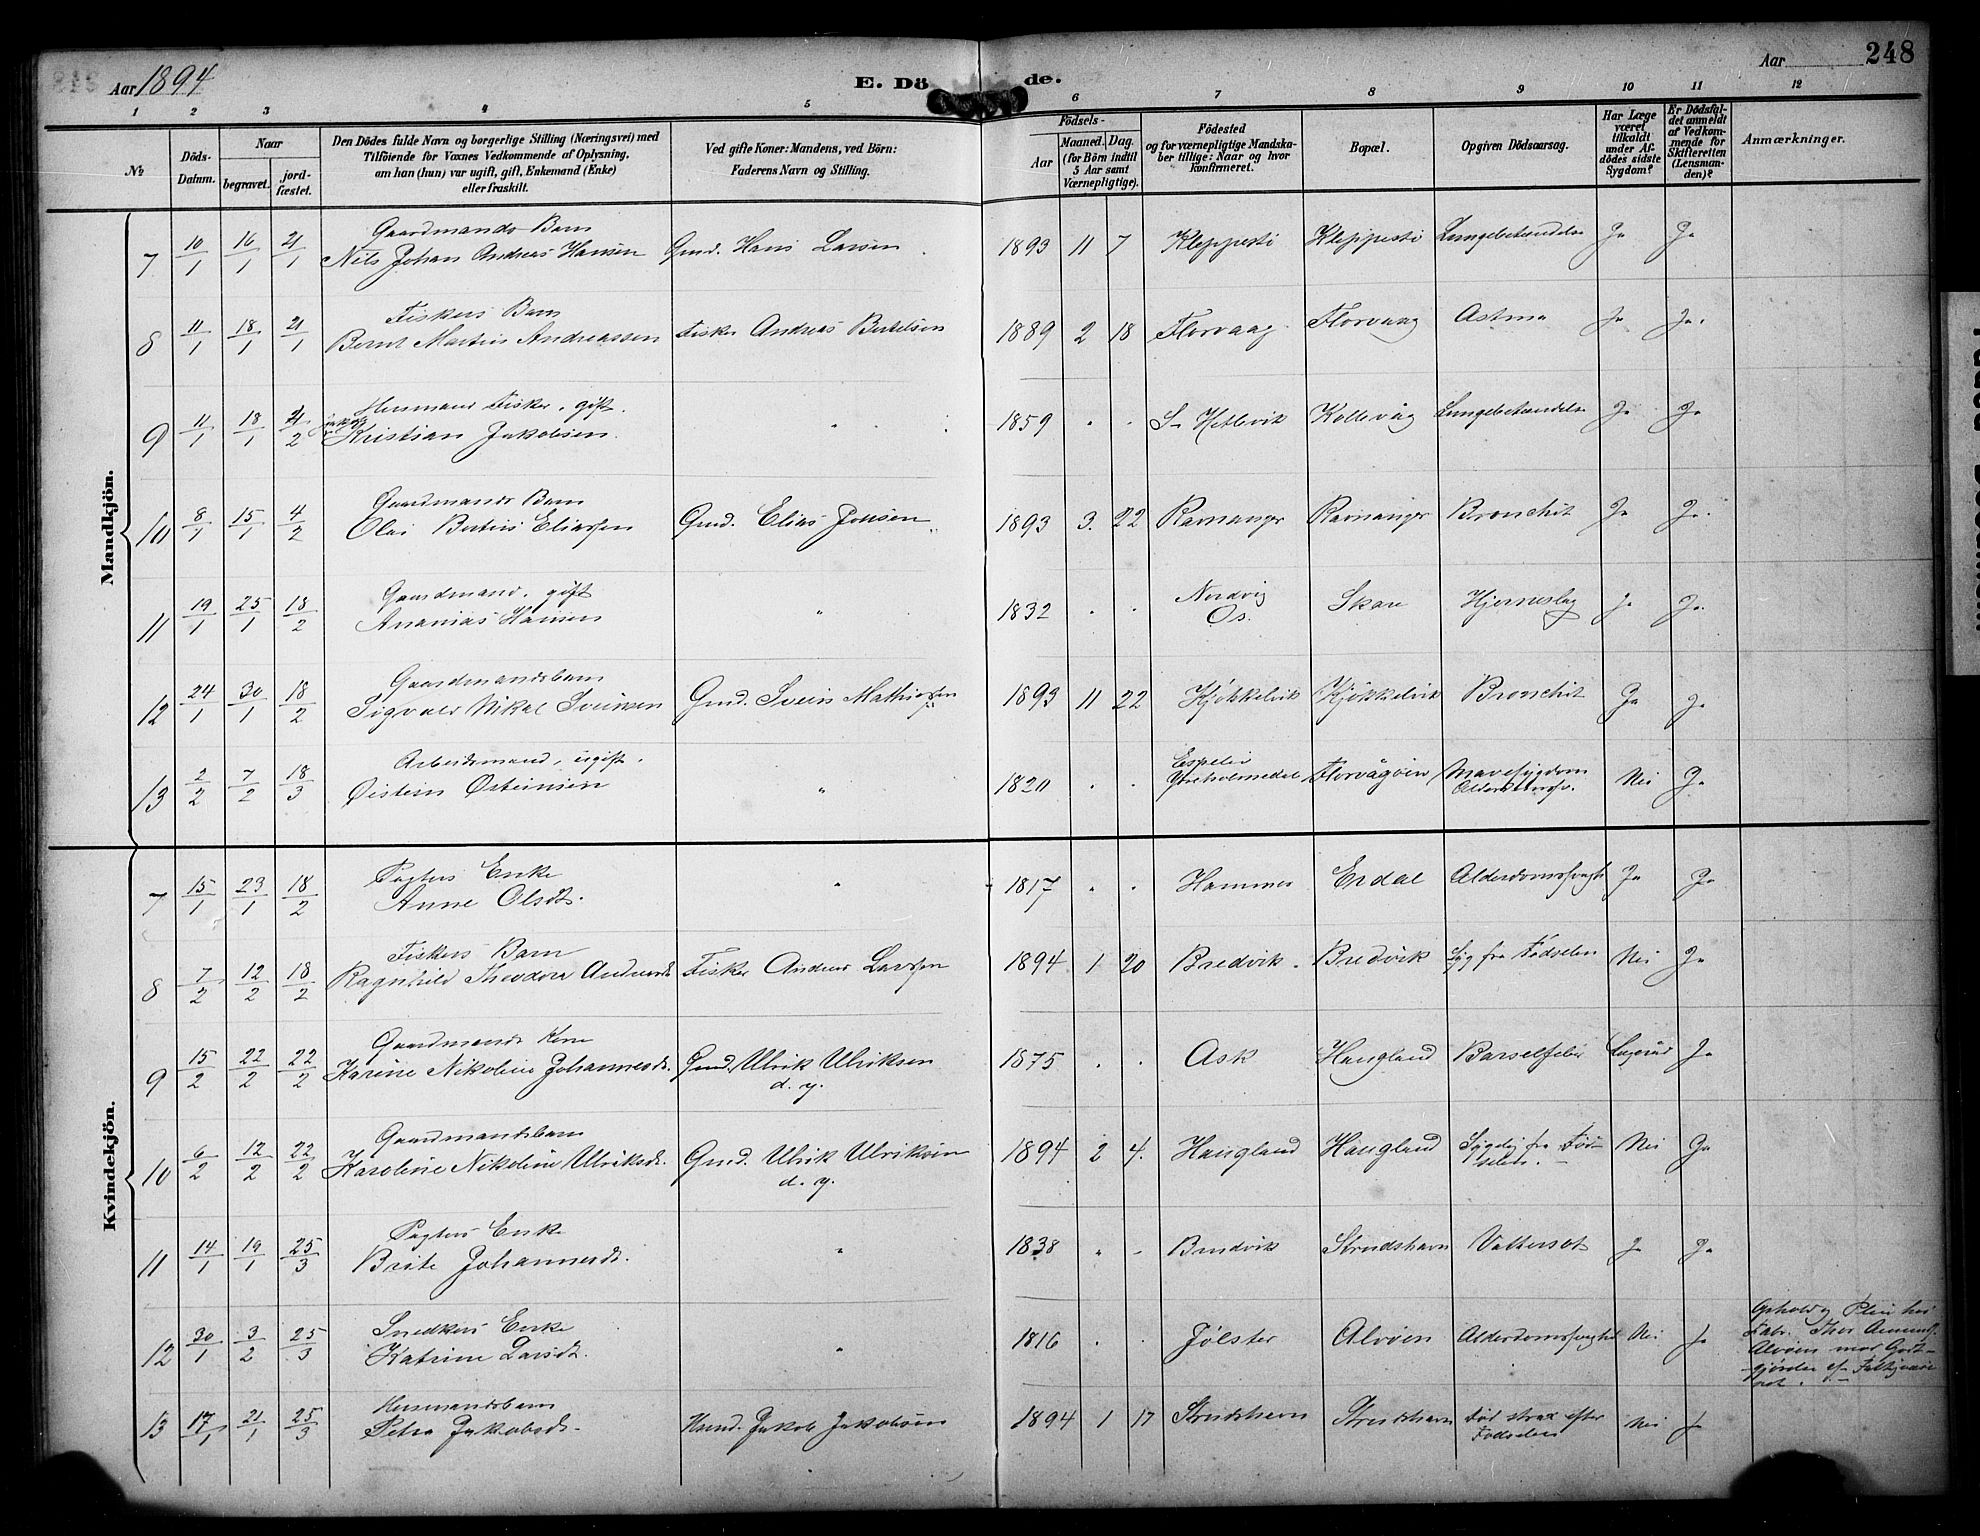 Aar 1894
E. Döde.
Aar
248
1 2 3 4 5 6 7 8 9 10 11 12
№
Döds-Datum.
Naar
begravet.
jord-fæstet.
Den Dödes fulde Navn og borgerlige Stilling (Næringsvei) med
Tilföiende for Voxnes Vedkommende af Oplysning,
om han (hun) var ugift, gift, Enkemand (Enke)
eller fraskilt.
Ved gifte Koner: Mandens, ved Börn:
Faderens Navn og Stilling.
Födsels-
Aar
Maaned. Dag.
(for Börn indtil
5 Aar samt
Værnepligtige).
Födested
og for værnepligtige Mandska-
ber tillige: Naar og hvor
konfirmeret.
Bopæl.
Opgiven Dödsaarsag.
Har Læge
været
tilkaldt
under Af-
dödes sidste
Sygdom?
Er Dödsfal-
det anmeldt
af Vedkom-
mende for
Skifteretten
(Lensman-
den)?
Anmærkninger.
Mandkjön.
Gaardmands Barn
7 10/1 16/1 21/1 Nils Johan Andreas Hansen Gmd. Hans Larsen 1893 11 7 Kleppestø Kleppestø Lungebetændelse Ja Ja
Fiskers Barn
8 11/1 18/1 21/1 Bernt Martin Andreassen Fisker Andreas Bertelsen 1889 2 18 Florvaag Florvaag Astma Ja Ja.
Husmand Fisker, gift.
9 11/1 18/1 21/2 Kristian Jakobsen. " 1859 " " S. Hetlevik Kollevåg Lungebetændelse Ja Ja
Gaardmands Barn
10 8/1 15/1 4/2 Olai Bertin Eliassen Gmd. Elias Jonsen 1893 3. 22 Ravnanger Ravnanger Bronchit Ja Ja.
Gaardmand, gift
11 19/1 25/1 18/2 Ananias Hansen " 1832 " " Nordvig
Os. Skare Hjerneslag Ja Ja.
Gaardmandsbarn
12 24/1 30/1 18/2 Sigvald Mikal Sveinsen Gmd. Svein Mathiessen 1893 11 22 Kjøkkelvik Kjøkkelvik Bronchit Ja Ja
Arbeidsmand, ugift.
13 2/2 7/2 18/3 Øistein Østeinsen " 1820 " " Espelid
Florvågøen Mavesygdom Nei Ja
Kvindekjön.
Pagters Enke
7 15/1 23/1 18/2 Anne Olsdt. " 1817 " " Hammer Erdal Alderdomssvaghd Ja Ja
Fiskers Barn
8 7/2 12/2 18/2 Ragnhild Theodora Andreasdt Fisker Andreas Larssen 1894 1 20 Bredvik. Bredvik Syg fra Fødselen Nei Ja
Gaardmands Kone
9 15/2 22/2 22/2 Karine Nikoline Johannesdt. Gmd. Ulrik Ulriksen
d. y. 1875 " " Ask Haugland Barselfeber Ja
Gaardmandsbarn
10 6/2 12/2 22/2 Karoline Nikoline Ulriksdt. Gmd. Ulrik Ulriksen
d. y. 1894 2 4. Haugland Haugland Sygelig fra Fød-
selen. Nei Ja
Pagters Enke
11 14/1 19/1 25/3 Brite Johannesdt. " 1838 " " Bredvik Strudshavn Vattersot Ja Ja
Snedkers Enke
12 30/1 3/2 25/3 Katrine Larsdt. " 1816 " " Jølster Alvøen Alderdomssvaghd Nei Ja
Husmandsbarn
13 17/1 21/1 25/3 Petra Jakobsdt. Husmd. Jakob Jakobsen 1894 1 17 Strudshavn Strudshavn Død strax efter
Fødselen Nei Ja